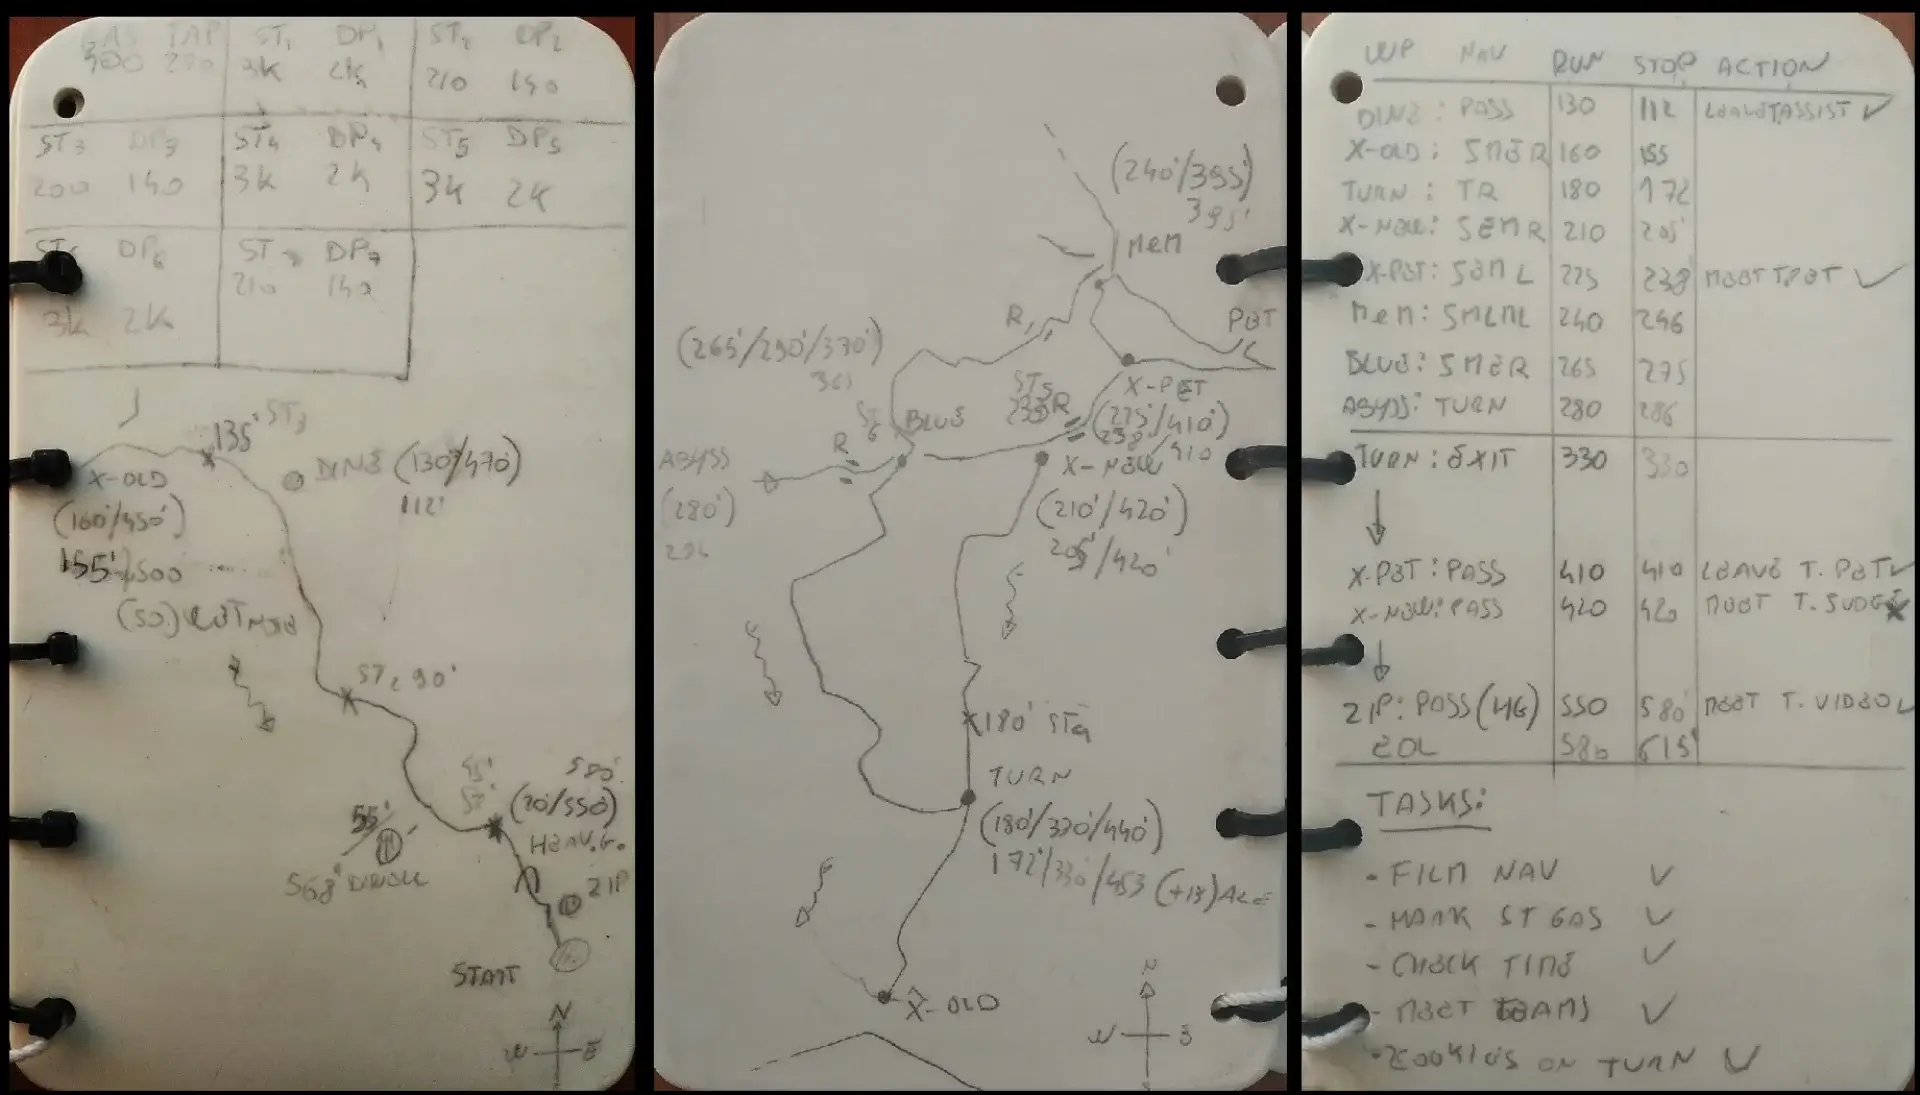 GAS TAP ST1 DP1 ST2 DP2
300 270 3K 2K 210 140
ST3 DP3 ST4 DP4 ST5 DP5
200 140 3K 2K 3K 2K
ST6 DP6 ST7 DP7
210 140
3K 2K
135' ST3
DINE (130'/470')
112'
X-OLD
(160'/450')
155'/500
ST2 90'
580'
(20'/550')
HEAV.G.
55'
568'
ZIP
START
N
W E
(240'/395')
395'
MEM
R
PET
(265'/290'/370')
365
ST5
R
X-PET
(225'/410')
238'/410
ST6
BLUE
R
ABYSS
(280')
X-NEW
(210'/420')
205'/420'
180' ST4
TURN
(180'/330'/440')
172'/330'/453 (+13)
X-OLD
N
W E
WP NAV RUN STOP ACTION
DINE: PASS 130 112 LEAVE T.ASSIST ✓
X-OLD: SMER 160 155
TURN: TR 180 172
X-NEW: SEMR 210 205'
X-PET: SEML 225 238 MEET T.PET ✓
MEM: SMLML 240 246
BLUE: SMER 265 275
ABYSS: TURN 280 286
TURN: EXIT 330 330
X-PET: PASS 410 410 LEAVE T. PET ✓
X-NEW: PASS 420 420 MEET T. SUDGE X
ZIP: PASS (HG) 550 580' MEET T. VIDEO ✓
EOL 580 615'
TASKS:
- FILM NAV ✓
- MARK ST GAS ✓
- CHECK TIME ✓
- MEET TEAMS ✓
- COOKIES ON TURN ✓